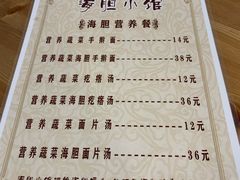 胆小馆
海胆营养餐
营养蔬菜手擀面 14元
营养蔬菜海胆手擀面 38元
营养蔬菜疙瘩汤 12元
营养蔬菜海胆疙瘩汤 36元
营养蔬菜面片汤 12元
营养蔬菜海胆面片汤 36元